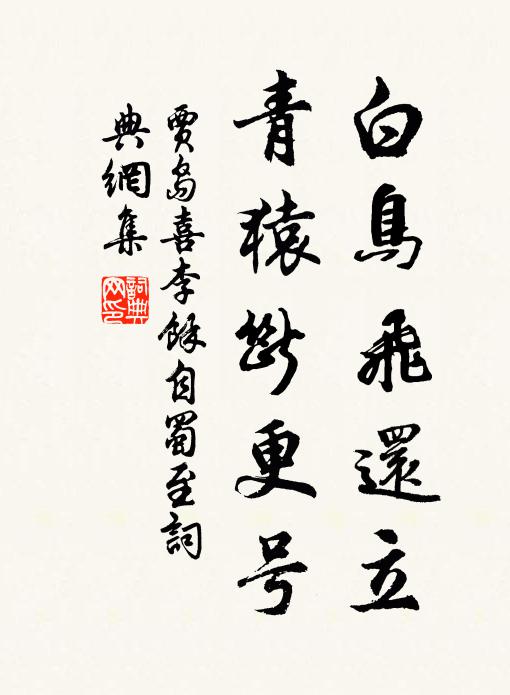 白鳥飛還立
青猿斷更号
賈島喜李餘自蜀至詞
典網集
詞典网印